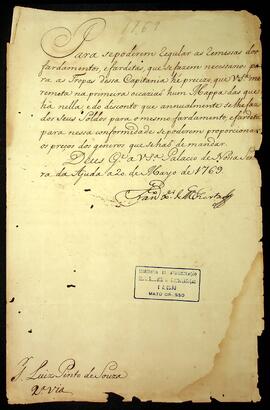 1769
Para se poderem regular as remessas dos
fardamentos, e fardetas, que se fazem necessarios pa-
ra as Tropas dessa Capitania he precizo que V. Sª. me
remeta na primeira occaziaõ hum Mappa das que
ha nella, e do desconto que annualmente se lhe faz
dos seus Soldos para o mesmo fardamento, e fardeta
para nessa conformidade se poderem proporcionar
os preços dos generos que se haõ de mandar.
Deos Gᵉ. a V. Sª. Palacio de Nossa Senho-
ra da Ajuda a 20 de Mayo de 1769.
MATO GROSSO
Sʳ. Luiz Pinto de Souza
2ª. via